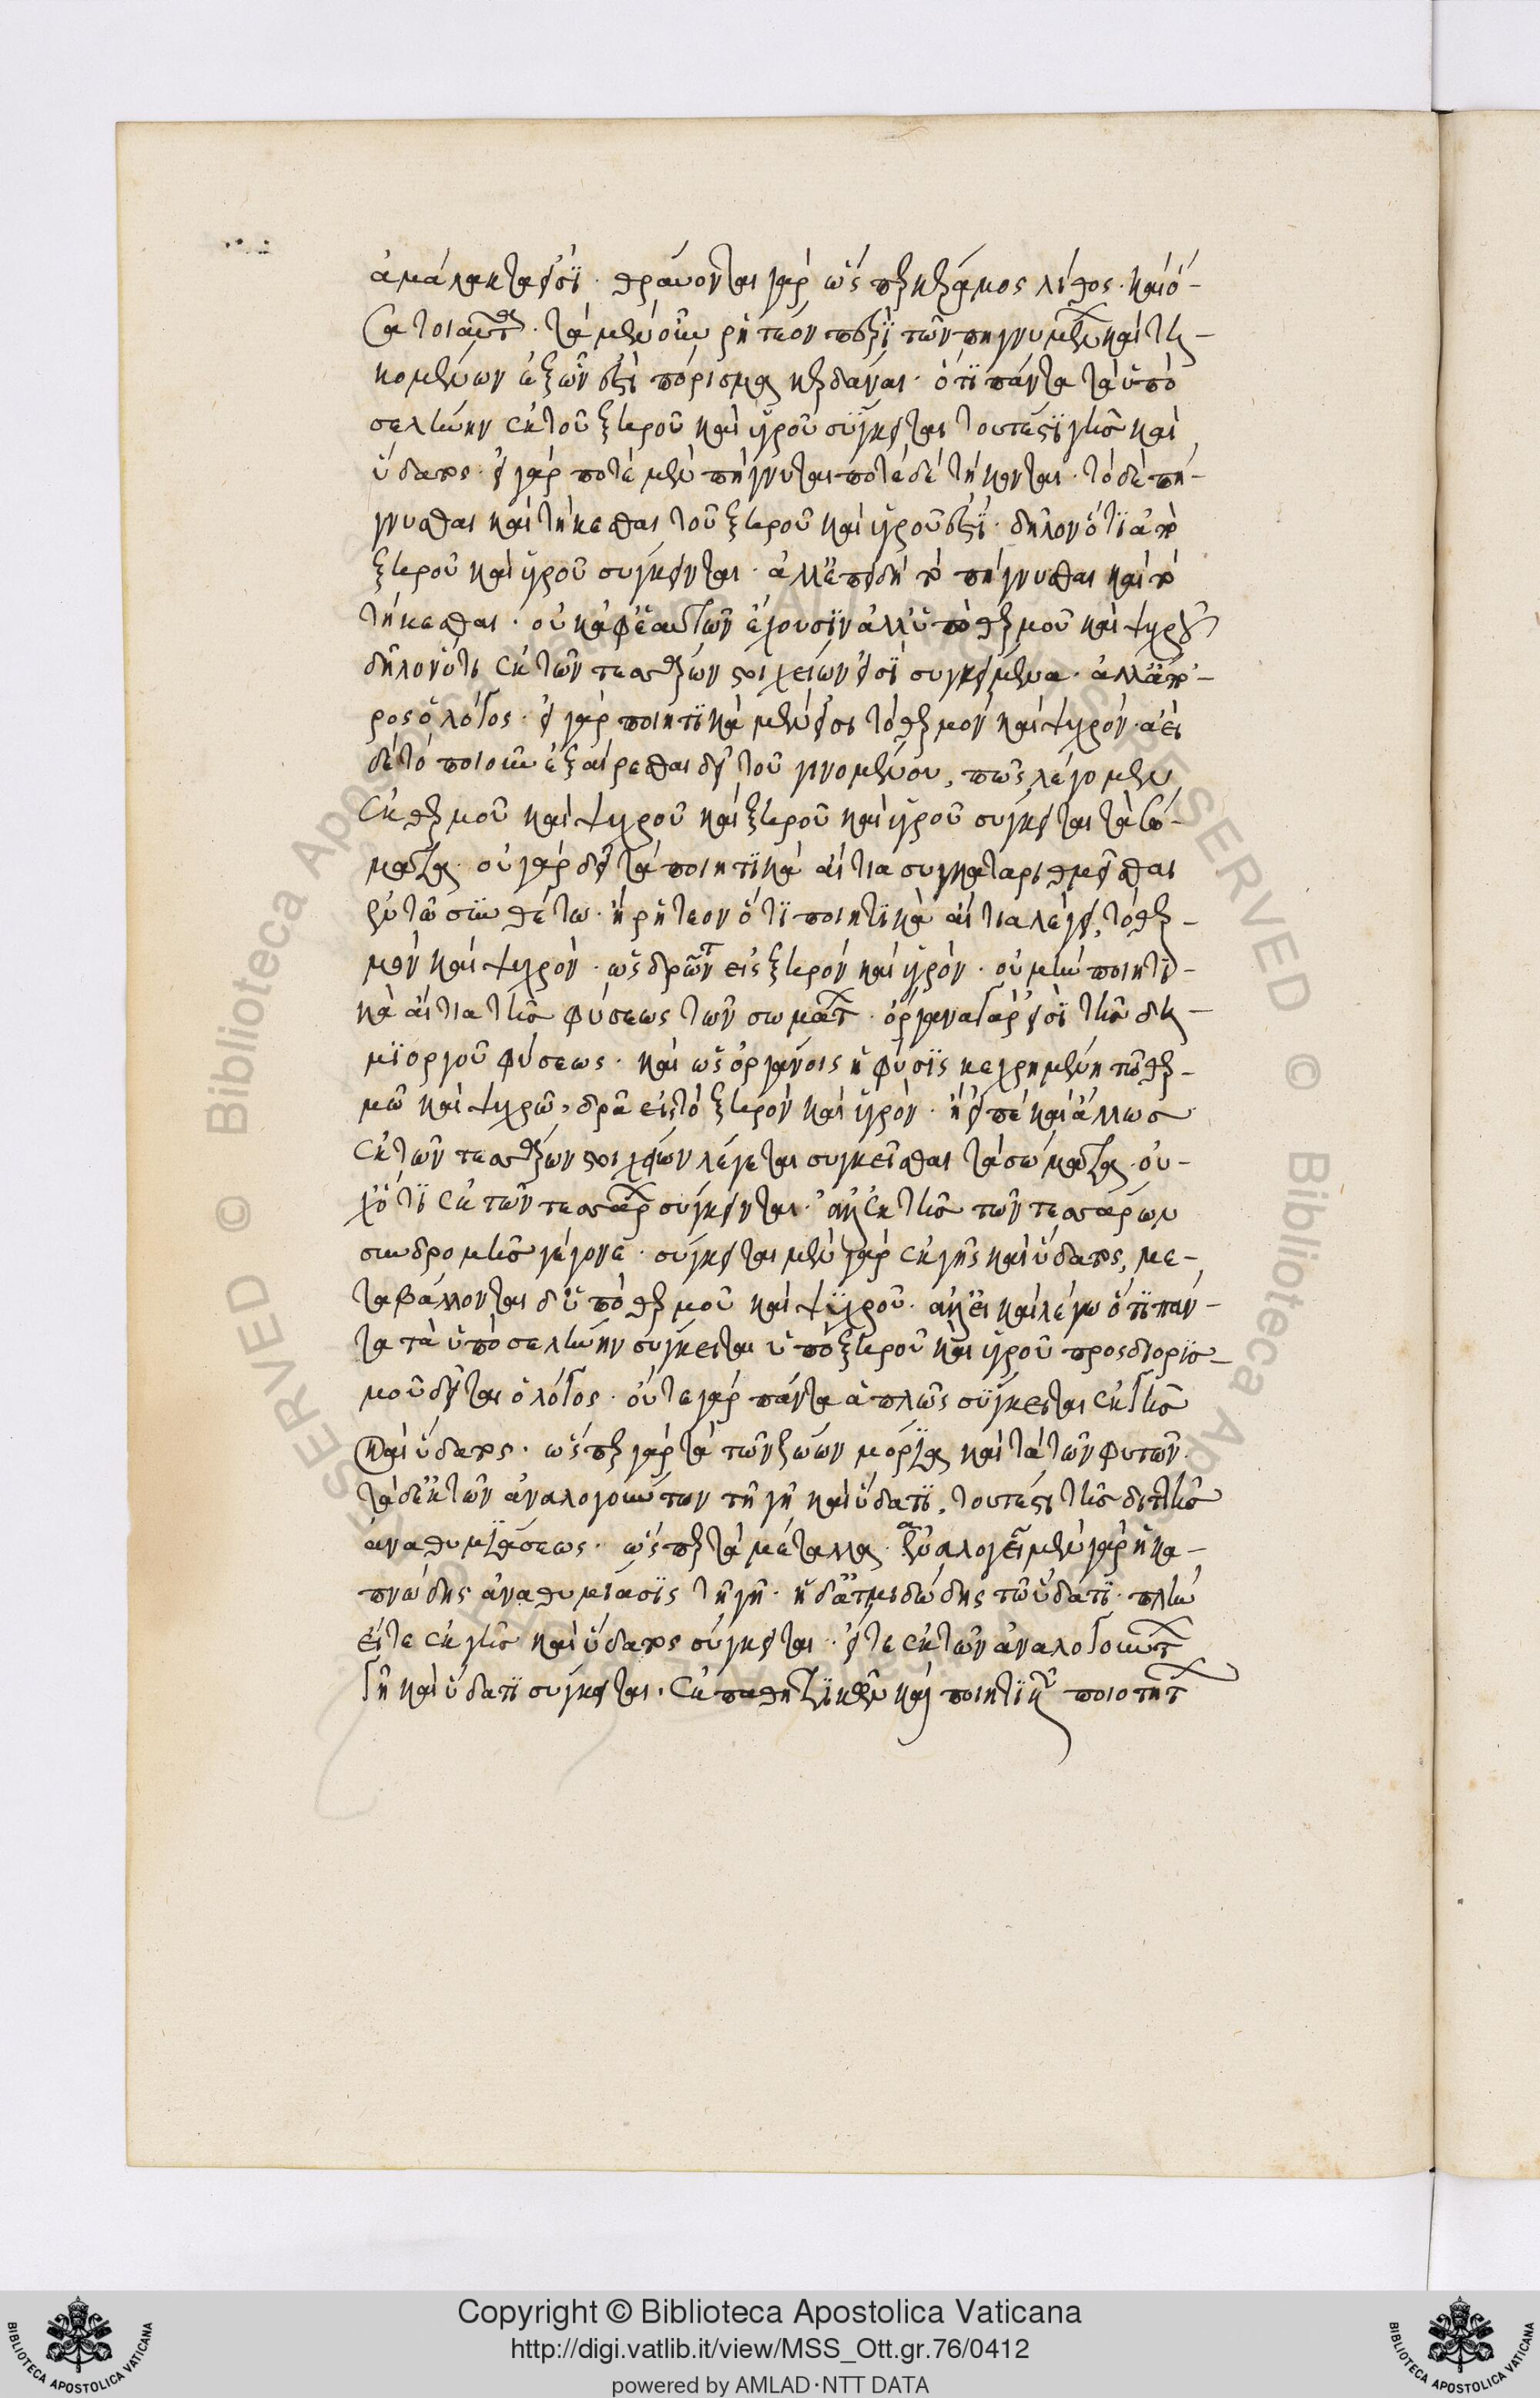 ἀμάλακτα εἰσί· θραύονται γὰρ ὥσπερ κέραμος λίθος· καὶ ὅ-
σα τοιαῦτα· τὰ μὲν οὖν ῥητέον περὶ τῶν πηγνυμένων καὶ τη-
κομένων ἐξ ὧν ἐστὶ πόρισμα κερδᾶναι· ὅτι πάντα τὰ ὑπὸ
σελήνην ἐκ τοῦ ξηροῦ καὶ ὑγροῦ σύγκειται τουτέστι γῆς καὶ
ὕδατος· εἰ γὰρ ποτὲ μὲν πήγνυται ποτὲ δὲ τήκονται· τὸ δὲ πή-
γνυσθαι καὶ τήκεσθαι τοῦ ξηροῦ καὶ ὑγροῦ ἐστί· δῆλον ὅτι ἀπὸ
ξηροῦ καὶ ὑγροῦ σύγκεινται· ἀλλ' ἐπειδὴ τὸ πήγνυσθαι καὶ τὸ
τήκεσθαι· οὐκ ἀφ' ἑαυτῶν ἔχουσιν ἀλλ' ὑπὸ θερμοῦ καὶ ψυχροῦ
δῆλον ὅτι ἐκ τῶν τεσσάρων στοιχείων εἰσὶ συγκείμενα· ἀλλ' ἄπο-
ρος ὁ λόγος· εἰ γὰρ ποιητικὰ μὲν εἰσι τὸ θερμὸν καὶ ψυχρόν· ἀεὶ
δὲ τὸ ποιοῦν ἐξαίρεσθαι δεῖ τοῦ γινομένου, πῶς λέγομεν
ἐκ θερμοῦ καὶ ψυχροῦ καὶ ξηροῦ καὶ ὑγροῦ σύγκειται τὰ σώ-
ματα· οὐ γὰρ δεῖ τὰ ποιητικὰ αἴτια συγκαταριθμεῖσθαι
ἐν τῷ συνθέτω· ἢ ῥητέον ὅτι ποιητικὰ αἴτια λέγει, τὸ θερ-
μὸν καὶ ψυχρὸν· ὡς δρῶντα εἰς ξηρὸν καὶ ὑγρόν· οὐ μὴν ποιητι-
κὰ αἴτια τῆς φύσεως τῶν σωμάτων· ὄργανα γάρ εἰσι τῆς δη-
μιοργοῦ φύσεως· καὶ ὡς ὀργάνοις ἡ φύσις κεχρημένη τῷ θερ-
μῷ καὶ ψυχρῷ, δρᾷ εἰς τὸ ξηρὸν καὶ ὑγρόν· ἢ εἰπὲ καὶ ἄλλως
ἐκ τῶν τεσσάρων στοιχείων λέγεται συγκεῖσθαι τὰ σώματα· οὐ-
χ ὅτι ἐκ τῶν τεσσάρων σύγκεινται· ἀλλ' ἐκ τῆς τῶν τεσσάρων
συνδρομῆς γέγονε· σύγκειται μὲν γὰρ ἐκ γῆς καὶ ὕδατος, με-
ταβάλλονται δ' ὑπὸ θερμοῦ καὶ ψυχροῦ· ἀλλ' εἰ καὶ λέγω ὅτι πάν-
τα τὰ ὑπὸ σελήνην σύγκειται ὑπὸ ξηροῦ καὶ ὑγροῦ προσδιορισ-
μοῦ δεῖται ὁ λόγος· οὔτε γὰρ πάντα ἁπλῶς σύγκειται ἐκ γῆς
καὶ ὕδατος· ὥσπερ γὰρ τὰ τῶν ζώων μόρια καὶ τὰ τῶν φυτῶν·
τὰ δ' ἐκ τῶν ἀναλογούντων τῇ γῇ καὶ ὕδατι, τουτέστι τῆς διττῆς
ἀναθυμιάσεως· ὥσπερ τὰ μέταλλα· ἀναλογεῖ μὲν γὰρ ἡ κα-
πνώδης ἀναθυμίασις τῇ γῇ· ἡ δ' ἀτμιδώδης τῷ ὕδατι· πλὴν
εἴτε ἐκ γῆς καὶ ὕδατος σύγκειται· εἴτε ἐκ τῶν ἀναλογούντων
γῇ καὶ ὕδατι σύγκειται· ἐκ παθητικῶν καὶ ποιητικῶν ποιοτήτων
Copyright © Biblioteca Apostolica Vaticana
http://digi.vatlib.it/view/MSS_Ott.gr.76/0412
powered by AMLAD·NTT DATA